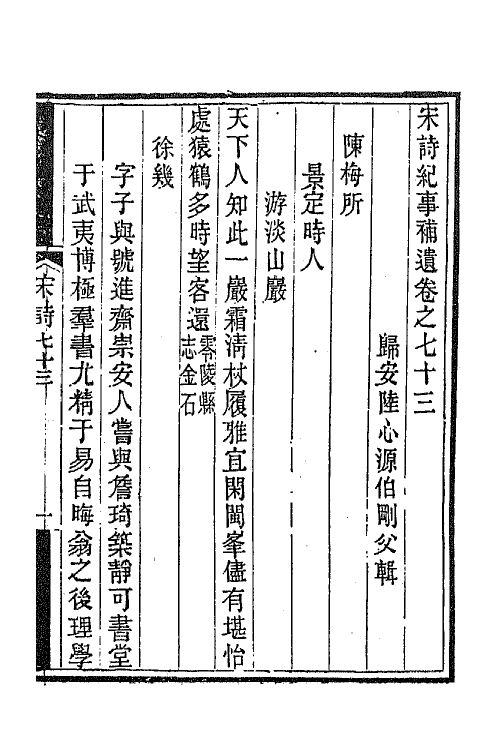 宋詩紀事補遺卷之七十三
歸安陸心源伯剛父輯
陳梅所
景定時人
游淡山巖
天下人知此一巖霜淸杖履雅宜閑閩峯儘有堪怡
處猿鶴多時望客還零陵縣志金石
徐幾
字子與號進齋崇安人嘗與詹琦築靜可書堂
于武夷博極羣書尤精于易自晦翁之後理學
宋詩七十三
一